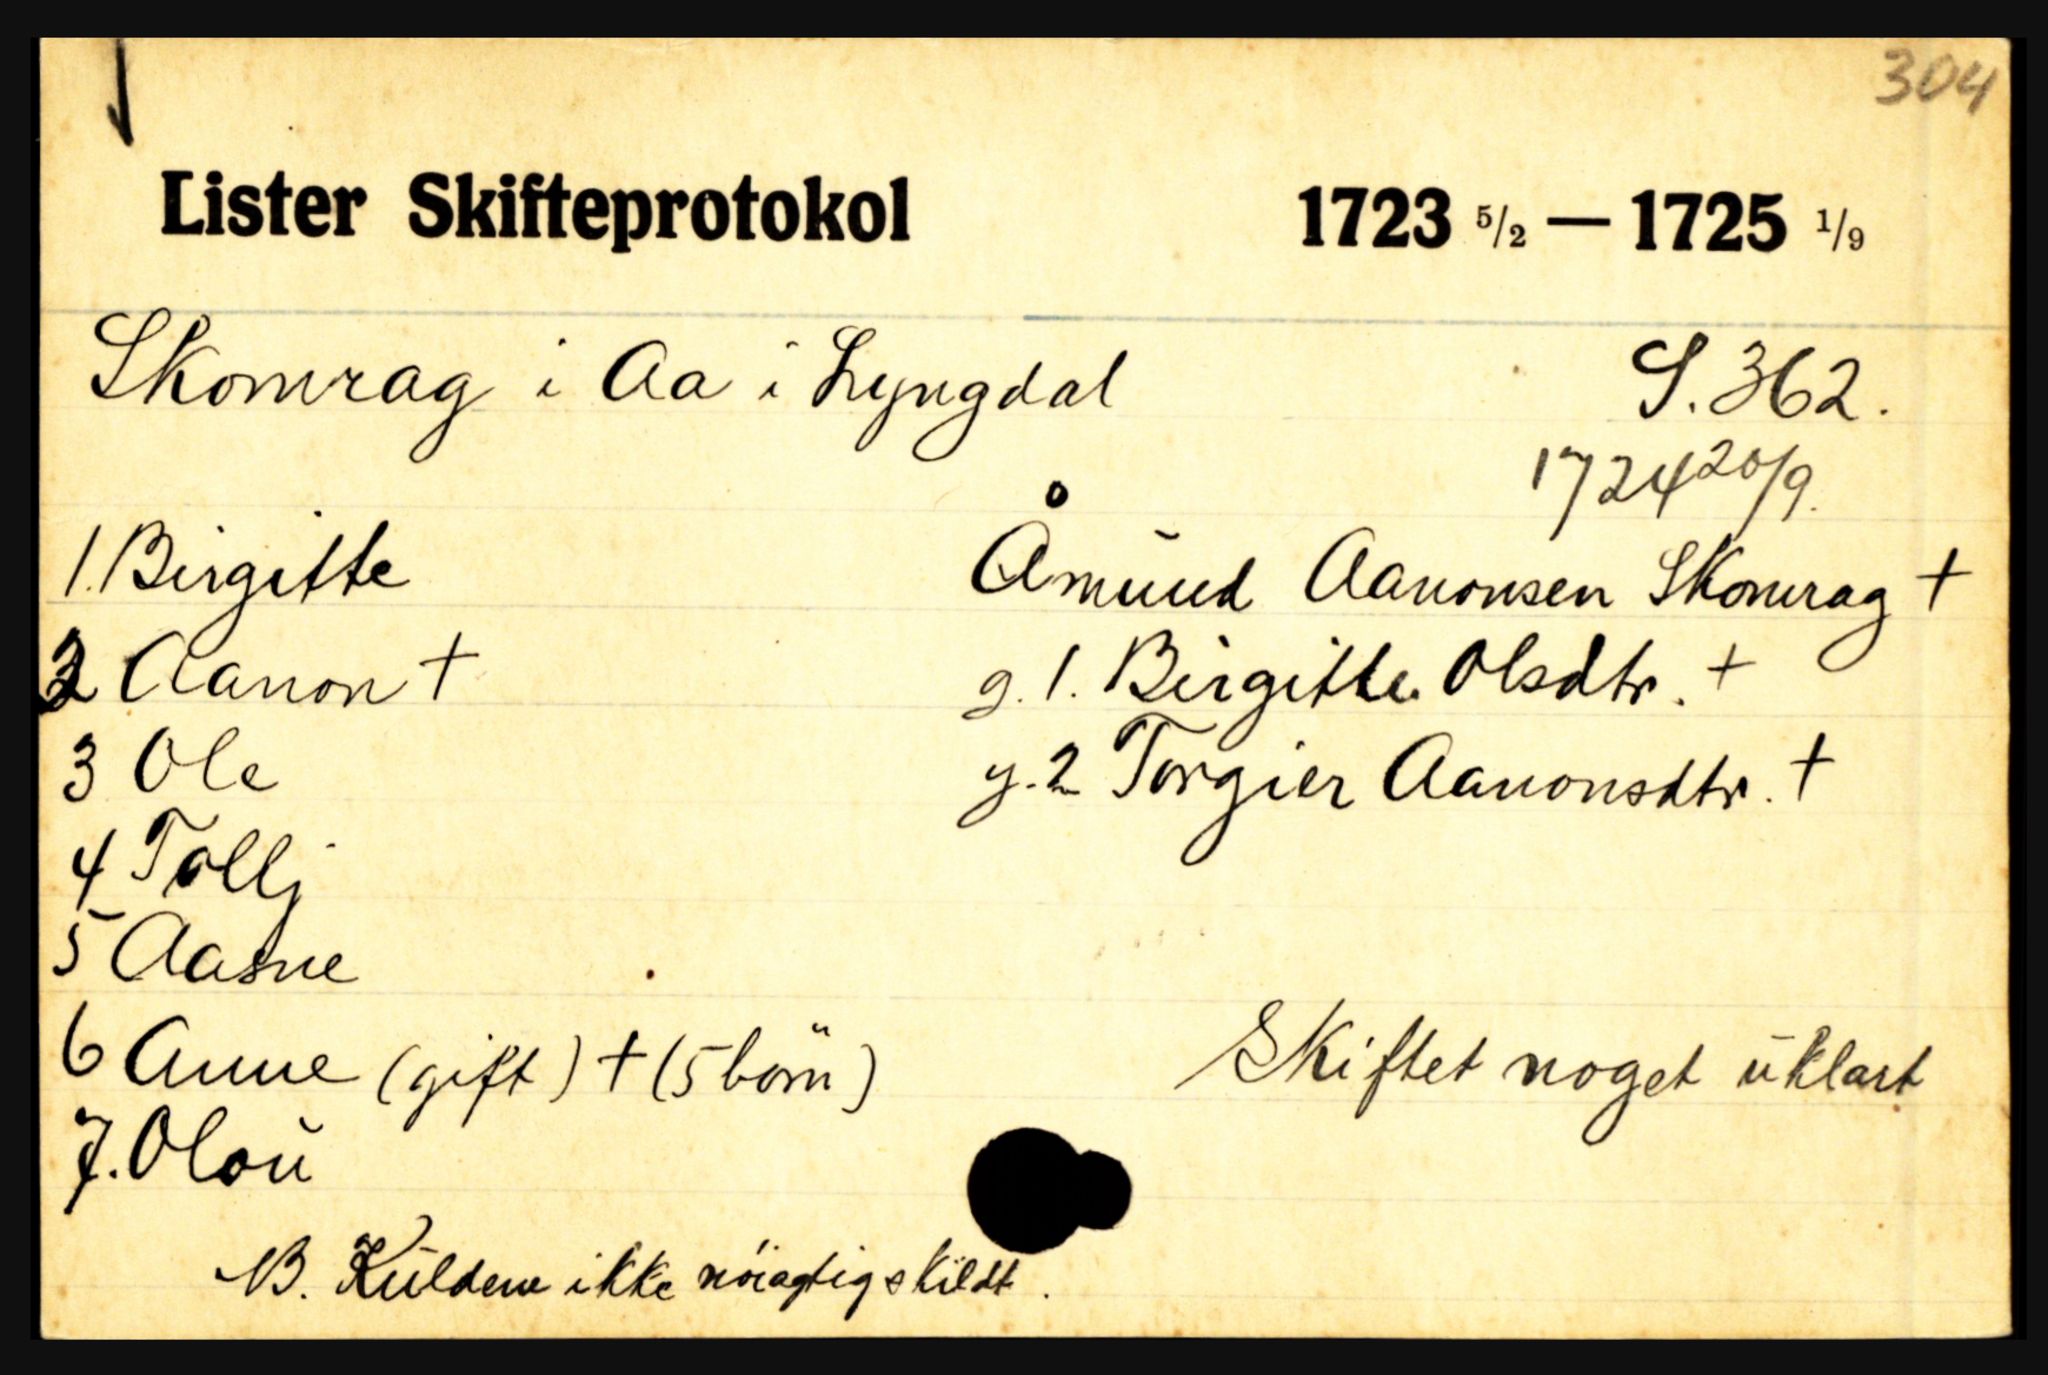 304
Lister Skifteprotokol 1723 5/2 — 1725 1/9
Skomrag i Aa i Lyngdal S. 362.
1724 20/9.
1. Birgitte Åmund Aanonsen Skomrag +
2 Aanon + g. 1. Birgitte Olsdtr. +
3 Ole g. 2 Torgier Aanonsdtr. +
4 Tollj
5 Aasne
6 Anne (gift) + (5 börn) Skiftet noget uklart
7. Olou
NB. Kuldene ikke nöiagtig skildt.